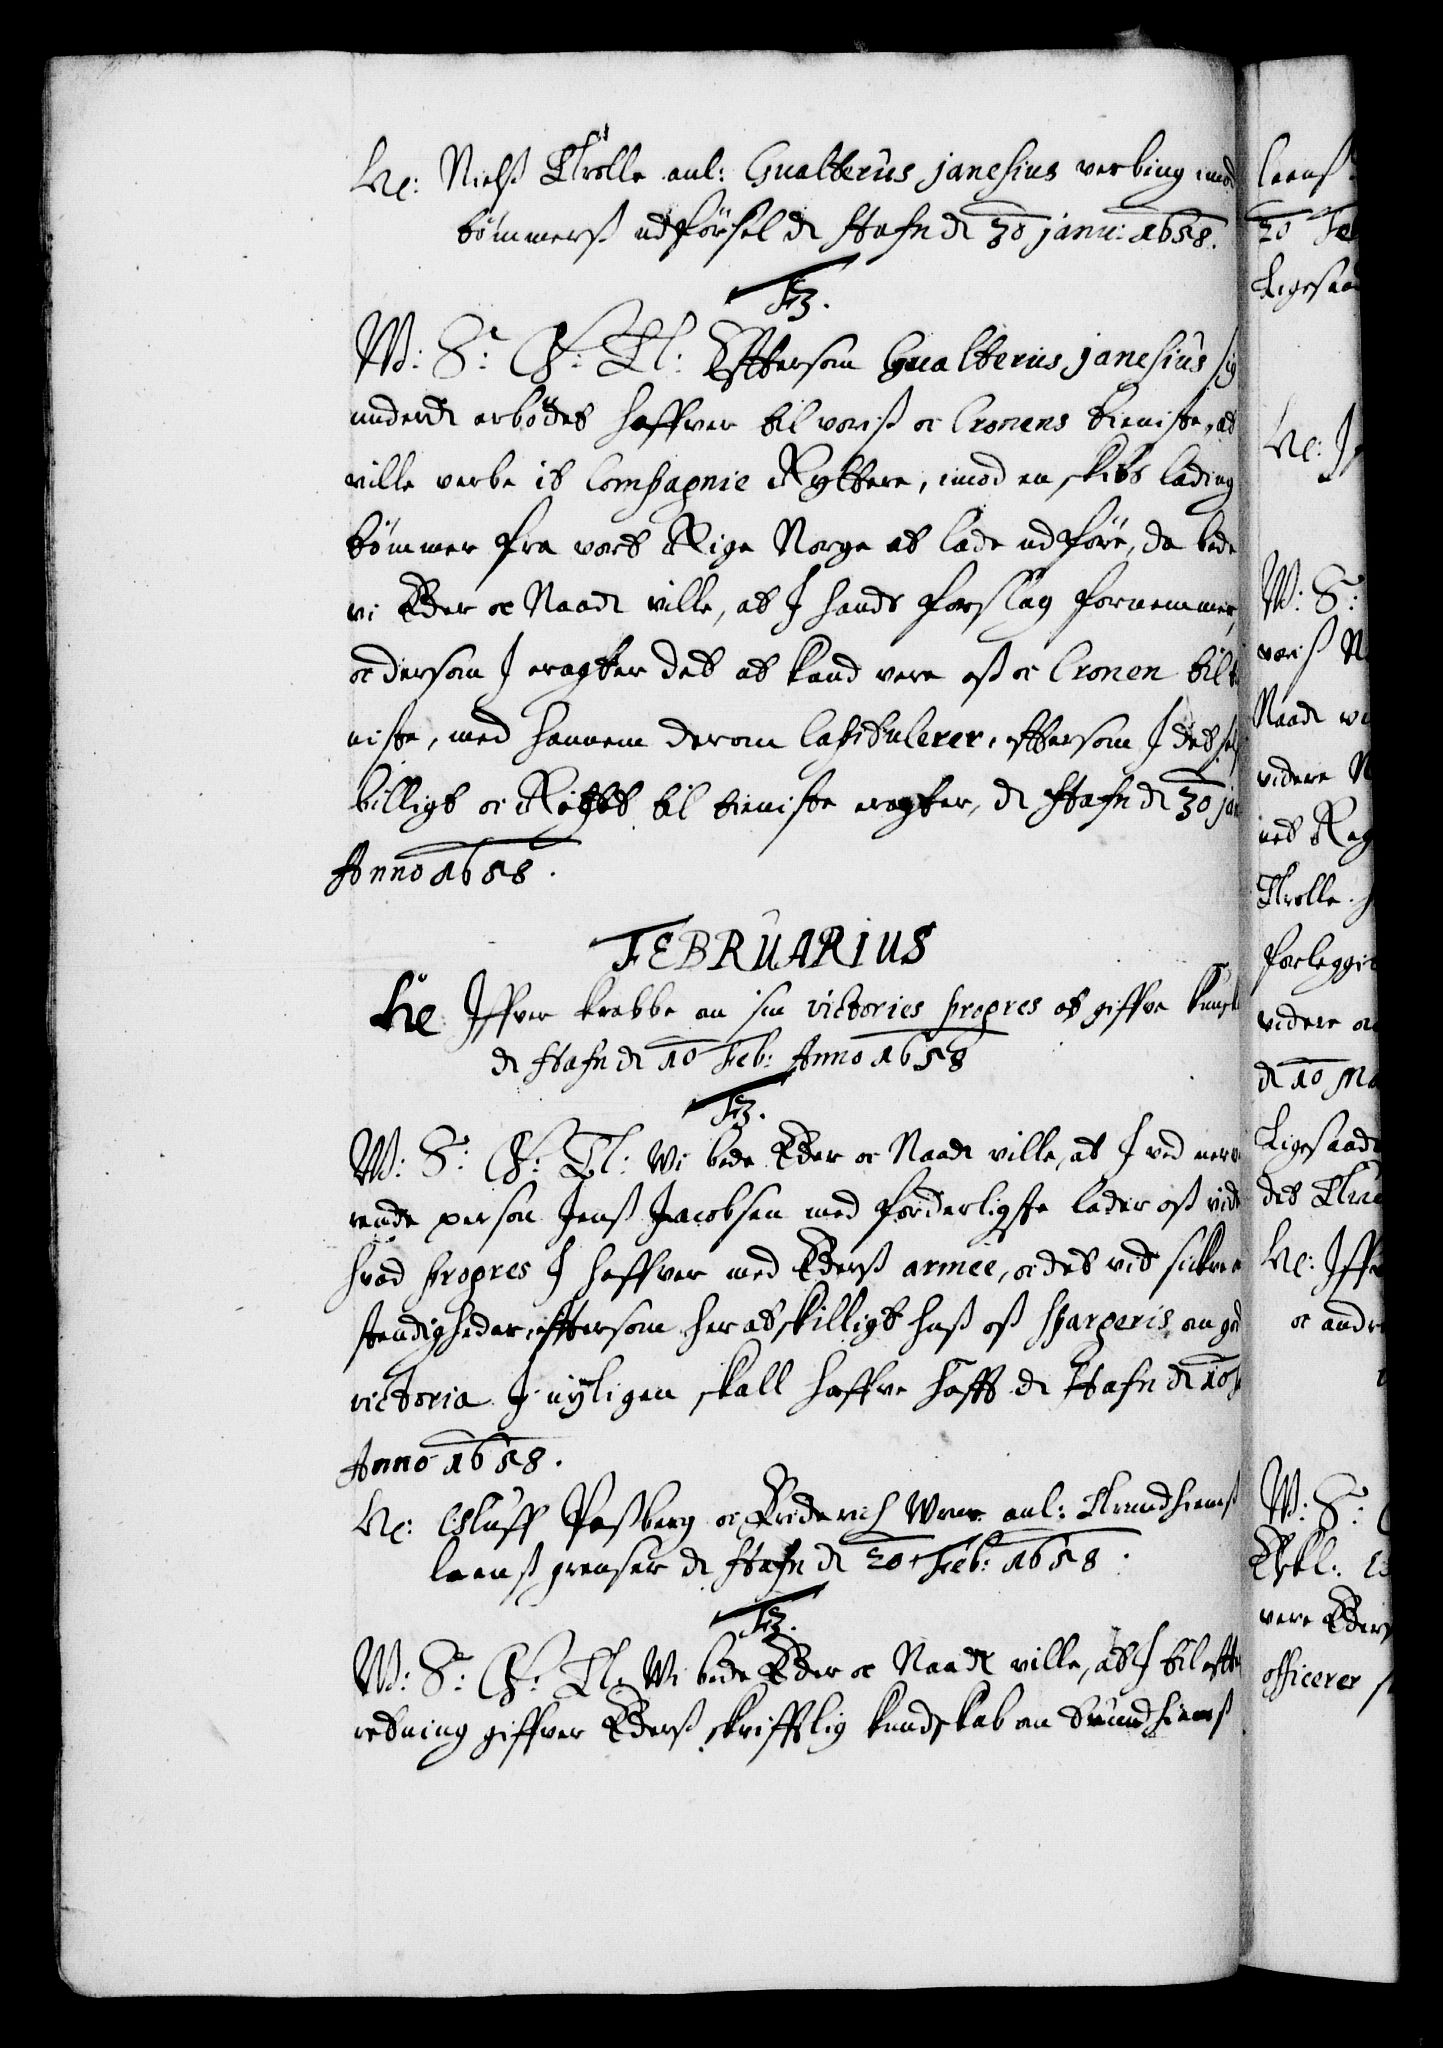 He: Nielß Trolle anl: Gualterus janesius verbing imod
tömmerß udförsel dt Hafn dt 30 janu: 1658.
F3.
W: S: G: Tl: Efftersom Gualterius janesius sig
underdt erbödet haffver til voriß oc Cronens tieniste, at
ville verbe it Compagnie Ryttere, imod en skibs lading
tömmer fra vort Rige Norge at lade udföre, da bede
vi Eder oc Naadt ville, at I hands forslag fornemmer,
oc dersom I eragter det at kand vere oß oc Cronen til tie
niste, med hannem derom Capitulerer, efftersom I det self
billigt oc Rigtigt til tieniste eragter, dt Hafn dt 30 jan
Anno 1658.
FEBRUARIUS
He Iffver krabbe om sin victories progres at giffve kundsk
dt Hafn dt 10 Feb: Anno 1658
F3.
W: S: G: Tl: Wi bede Eder oc Naadt ville, at I ved nerve
rende person Jenß Jacobsen med forderligste lader oß vide
hvad progres I haffver med Ederß armee, oc det vid sickre om
stendigheder, efftersom her atskilligt hoß oß spargeris om god
victoria I nyligen skall haffve hafft dt Hafn dt 10 F
Anno 1658.
He: Oluff Paßberg oc Friderich Wrne anl: Trundhiemß
leenß grenser dt Hafn dt 20 Feb: 1658.
F3.
W: S: G: Tl: Wi bede Eder oc Naadt ville, at I til effter
retning giffver Ederß skrifftlig kundskab om Trundhiemß
leenß
20 Feb
Ligesaa
He: I
W: S:
voriß N
Naadt vi
videre N
net Reg
Trolle
forleggi
videre
dt 10 Ma
Ligesaadt
det Trun
He: Iffve
oc andre
W: S:
vere Eders
officerer